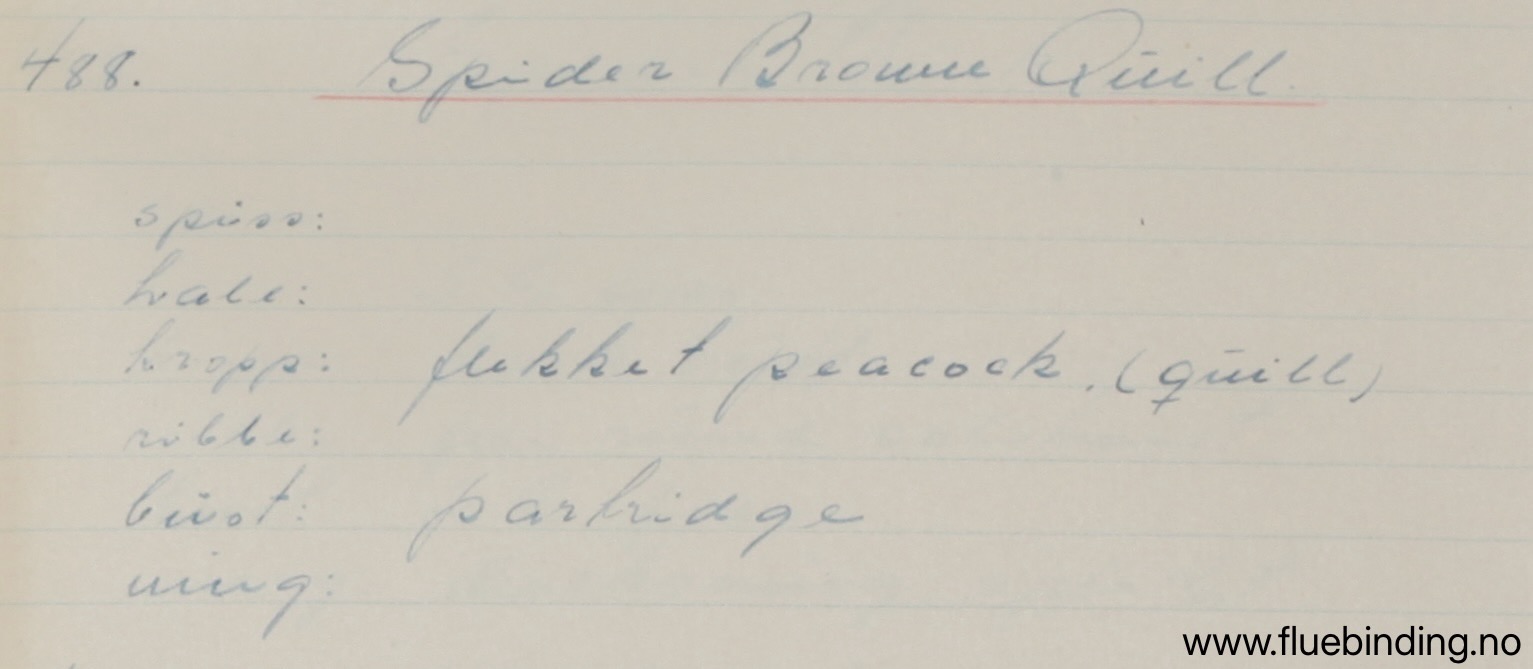 488. Spider Brown Quill.
spiss:
hale:
kropp: flekket peacock. (quill)
ribbe:
bust: partridge
ving:
www.fluebinding.no